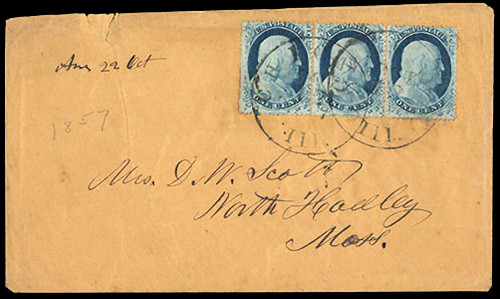 U.S. POSTAGE U.S. POSTAGE U.S. POSTAGE
ONE CENT ONE CENT ONE CENT
ILL. ILL.
Ans 22 Oct
1857
Mrs. D. W. Scott
North Hadley
Mass.